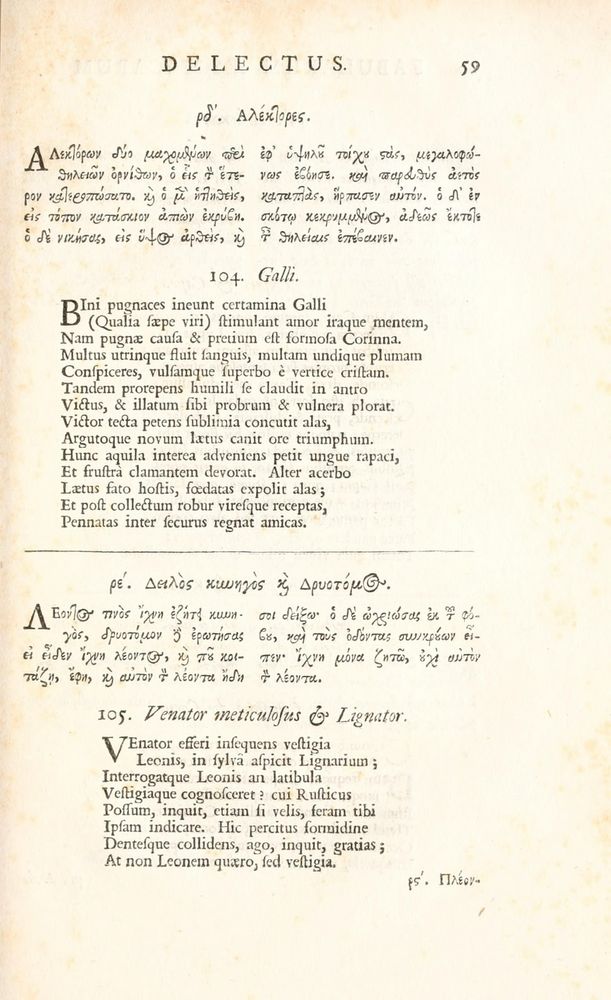 DELECTUS. 59
ρδ´. Αλέκτορες.
ΑΛεκτόρων δύο μαχομένων περὶ
θηλειῶν ὀρνίθων, ὁ εἷς τὸν ἕτε-
ρον κατετροπώσατο. καὶ ὁ μὲν ἡττηθεὶς,
εἰς τόπον κατάσκιον ἀπιὼν ἐκρύβη.
ὁ δὲ νικήσας, εἰς ὕψος ἀρθεὶς, καὶ
ἐφ' ὑψηλοῦ τοίχου στὰς, μεγαλοφώ-
νως ἐβόησε. καὶ παρευθὺς ἀετὸς
καταπτὰς, ἥρπασεν αὐτόν. ὁ δ' ἐν
σκότῳ κεκρυμμένος, ἀδεῶς ἔκτοτε
ταῖς θηλείαις ἐπέβαινεν.
104. Galli.
BIni pugnaces ineunt certamina Galli
(Qualia sæpe viri) stimulant amor iraque mentem,
Nam pugnæ causa & pretium est formosa Corinna.
Multus utrinque fluit sanguis, multam undique plumam
Conspiceres, vulsamque superbo è vertice cristam.
Tandem prorepens humili se claudit in antro
Victus, & illatum sibi probrum & vulnera plorat.
Victor tecta petens sublimia concutit alas,
Argutoque novum lætus canit ore triumphum.
Hunc aquila interea adveniens petit ungue rapaci,
Et frustrà clamantem devorat. Alter acerbo
Lætus fato hostis, fœdatas expolit alas;
Et post collectum robur viresque receptas,
Pennatas inter securus regnat amicas.
ρε´. Δειλὸς κυνηγὸς καὶ Δρυοτόμος.
ΛΕοντός τινος ἴχνη ἐζήτει κυνη-
γὸς, δρυοτόμον δὲ ἐρωτήσας
εἰ εἶδεν ἴχνη λέοντος, καὶ ποῦ κοι-
τάζῃ, ἔφη, καὶ αὐτὸν τὸν λέοντα ἤδη
σοι δείξω· ὁ δὲ ὠχριώσας ἐκ τοῦ φό-
βου, καὶ τοὺς ὀδόντας συγκρούων εἶ-
πεν· ἴχνη μόνα ζητῶ, οὐχὶ αὐτὸν
τὸν λέοντα.
105. Venator meticulosus & Lignator.
VEnator efferi insequens vestigia
Leonis, in sylvâ aspicit Lignarium;
Interrogatque Leonis an latibula
Vestigiaque cognosceret? cui Rusticus
Possum, inquit, etiam si velis, feram tibi
Ipsam indicare. Hic percitus formidine
Dentesque collidens, ago, inquit, gratias;
At non Leonem quæro, sed vestigia.
ρς´. Πλέον-